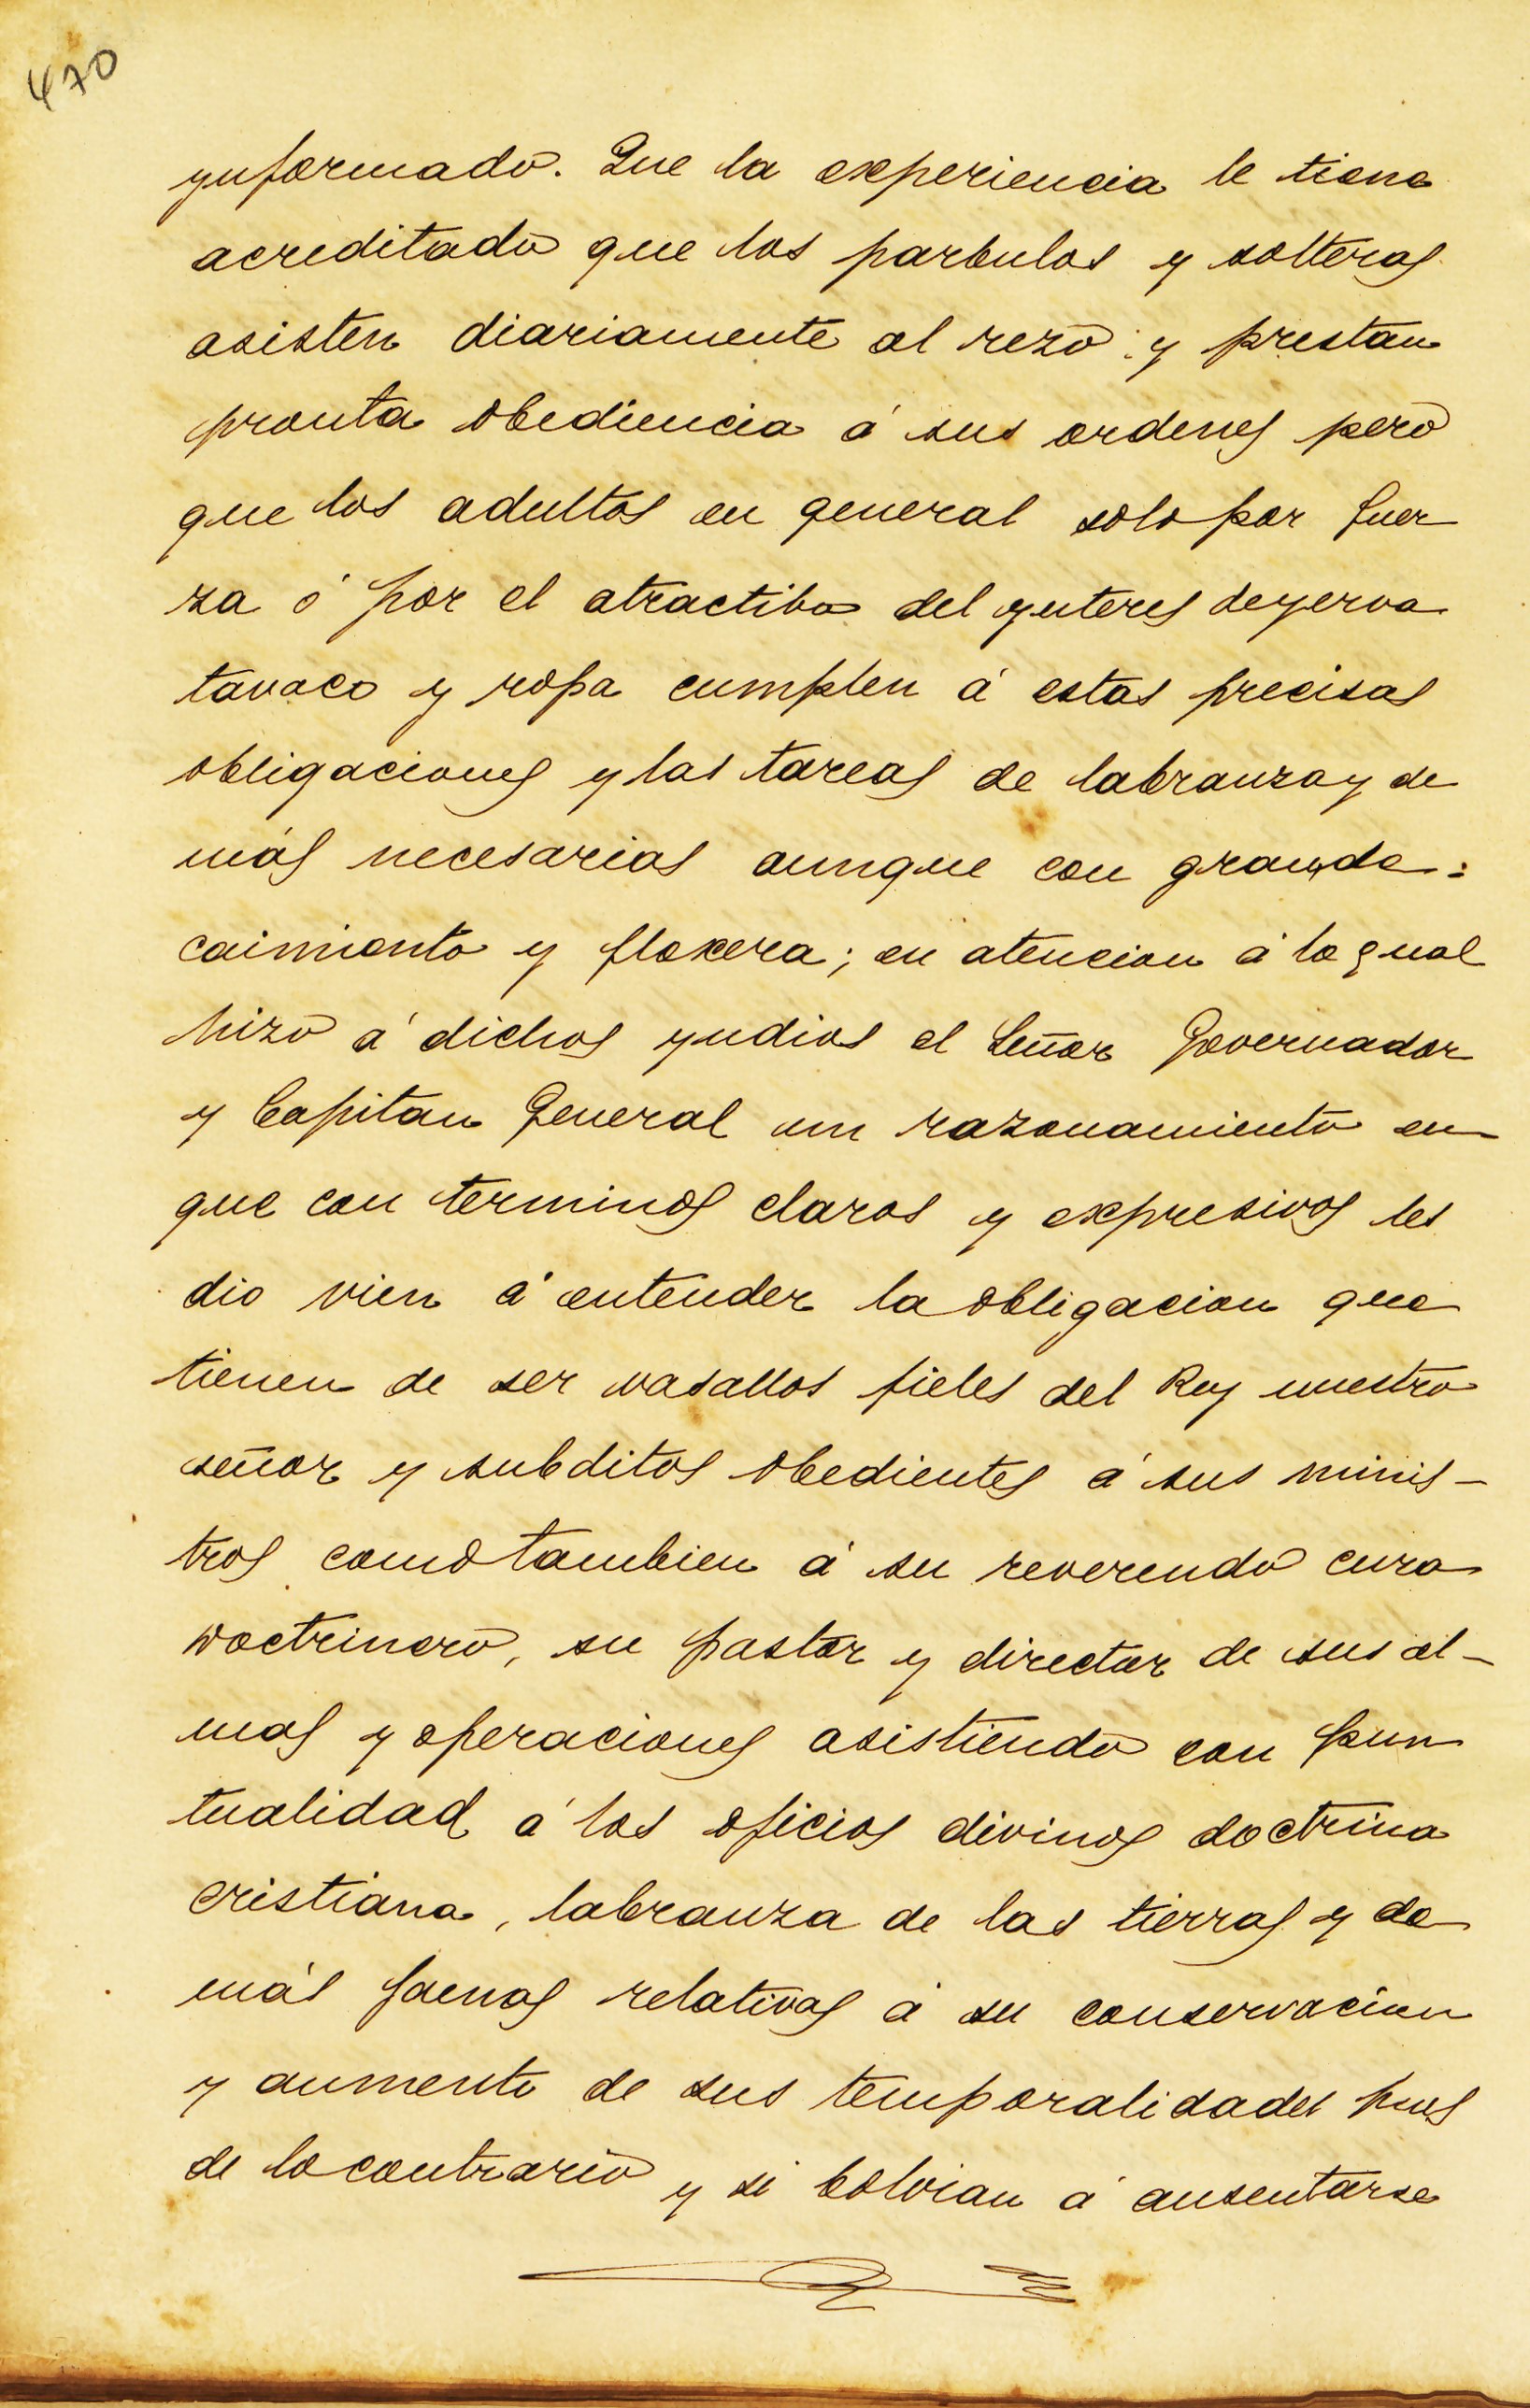 470
ynformado. Que la experiencia le tiene
acreditado que los parbulos y solteras
asisten diariamente al rezo y prestan
pronta obediencia á sus ordenes pero
que los adultos en general solo por fuer
za ó por el atractibo del ynteres de yerva
tavaco y ropa cumplen á estas precisas
obligaciones y las tareas de labranza y de
más necesarias aunque con gran de:
caimiento y floxera; en atencion á lo qual
hizo á dichos yndios el Señor Governador
y Capitan General um razonamiento en
que con terminos claros y expresivos les
dio vien á entender la obligacion que
tienen de ser vasallos fieles del Rey nuestro
señor y subditos obedientes á sus minis-
tros como tambien á su reverendo cura
doctrinero, su pastor y director de sus al-
mas y operaciones asistiendo con pun
tualidad á los oficios divinos doctrina
cristiana, labranza de las tierras y de
más faenas relativas á su conservacion
y aumento de sus temporalidades pues
de lo contrario y si bolvian á ausentarse